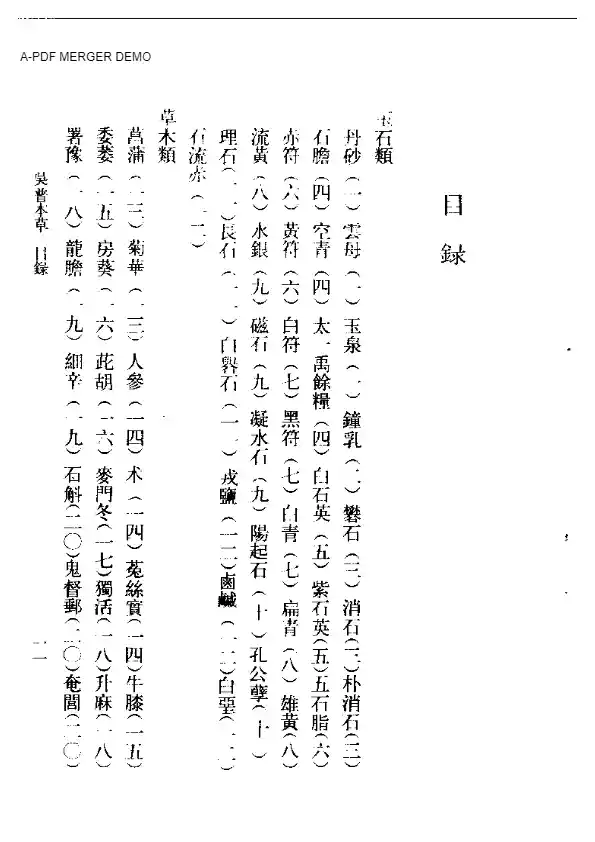 A-PDF MERGER DEMO
目録
玉石類
丹砂（一）雲母（一）玉泉（一）鐘乳（二）礬石（三）消石（三）朴消石（三）
石膽（四）空青（四）太一禹餘糧（四）白石英（五）紫石英（五）五石脂（六）
赤符（六）黃符（六）白符（七）黑符（七）白青（七）扁青（八）雄黃（八）
流黃（八）水銀（九）磁石（九）凝水石（九）陽起石（十）孔公孽（十）
理石 長石 白礜石 戎鹽 鹵鹹 白堊
石流赤
草木類
菖蒲 菊華 人參（一四）术（一四）菟絲實（一四）牛膝（一五）
委萎（一五）房葵（一六）茈胡（一六）麥門冬（一七）獨活（一八）升麻（一八）
署豫（一八）龍膽（一九）細辛（一九）石斛（二〇）鬼督郵（二〇）奄閭（二〇）
吳普本草 目錄